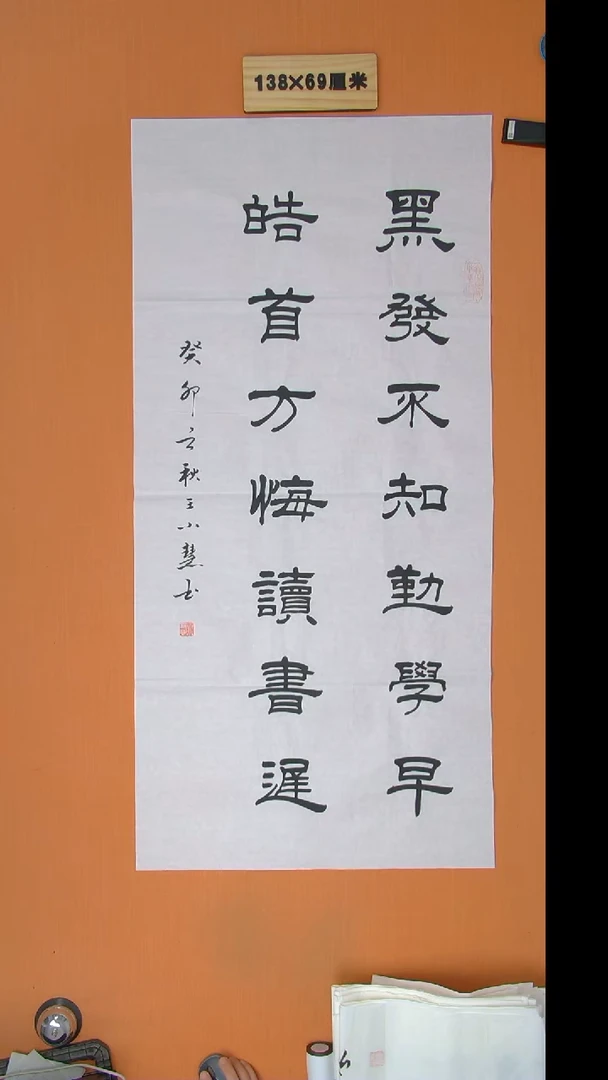 138×69厘米
黑發不知勤學早
皓首方悔讀書遲
癸卯立秋王小慧书